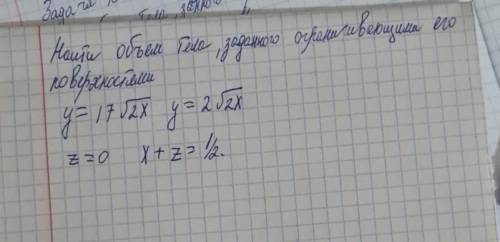 Задача
тела, заданного
Найти объем тела, заданного ограничивающими его
поверхностями
y = 17√2x y = 2√2x
z = 0 x + z = 1/2.